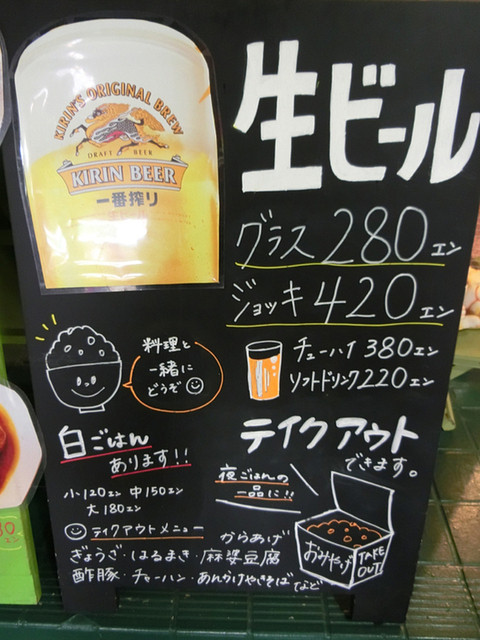 KIRIN'S ORIGINAL BREW
DRAFT BEER
KIRIN BEER
一番搾り
生ビール
グラス 280エン
ジョッキ 420エン
チューハイ 380エン
ソフトドリンク 220エン
料理と
一緒に
どうぞ
白ごはん
あります!!
小120エン 中150エン
大180エン
テイクアウト
できます。
夜ごはんの
一品に!!
テイクアウトメニュー
からあげ
ぎょうざ・はるまき・麻婆豆腐
酢豚・チャーハン・あんかけやきそば
など
おみやげ
TAKE
OUT!